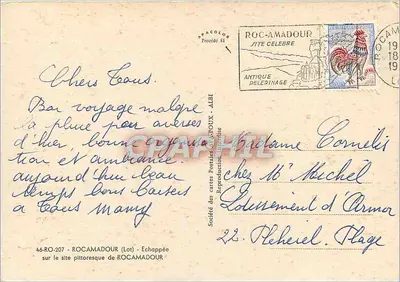 SPACOLOR
ROC-AMADOUR
SITE CELEBRE
ANTIQUE
PELERINAGE
ROCAMA
18
Chers Tous.
Bon voyage malgré
la pluie par averses
d'hier bonne
tion et ambiance
aujourd'hui beau
temps bons baisers
à Tous Mamy
46-RO-207 - ROCAMADOUR (Lot) - Echappée
sur le site pittoresque de ROCAMADOUR
Société des cartes Postales APA-POUX - ALBI
Reproduction
CPAPHIL
Cornélis
chez Mr Michel
Lotissement d'Armor
22. Pléherel. Plage